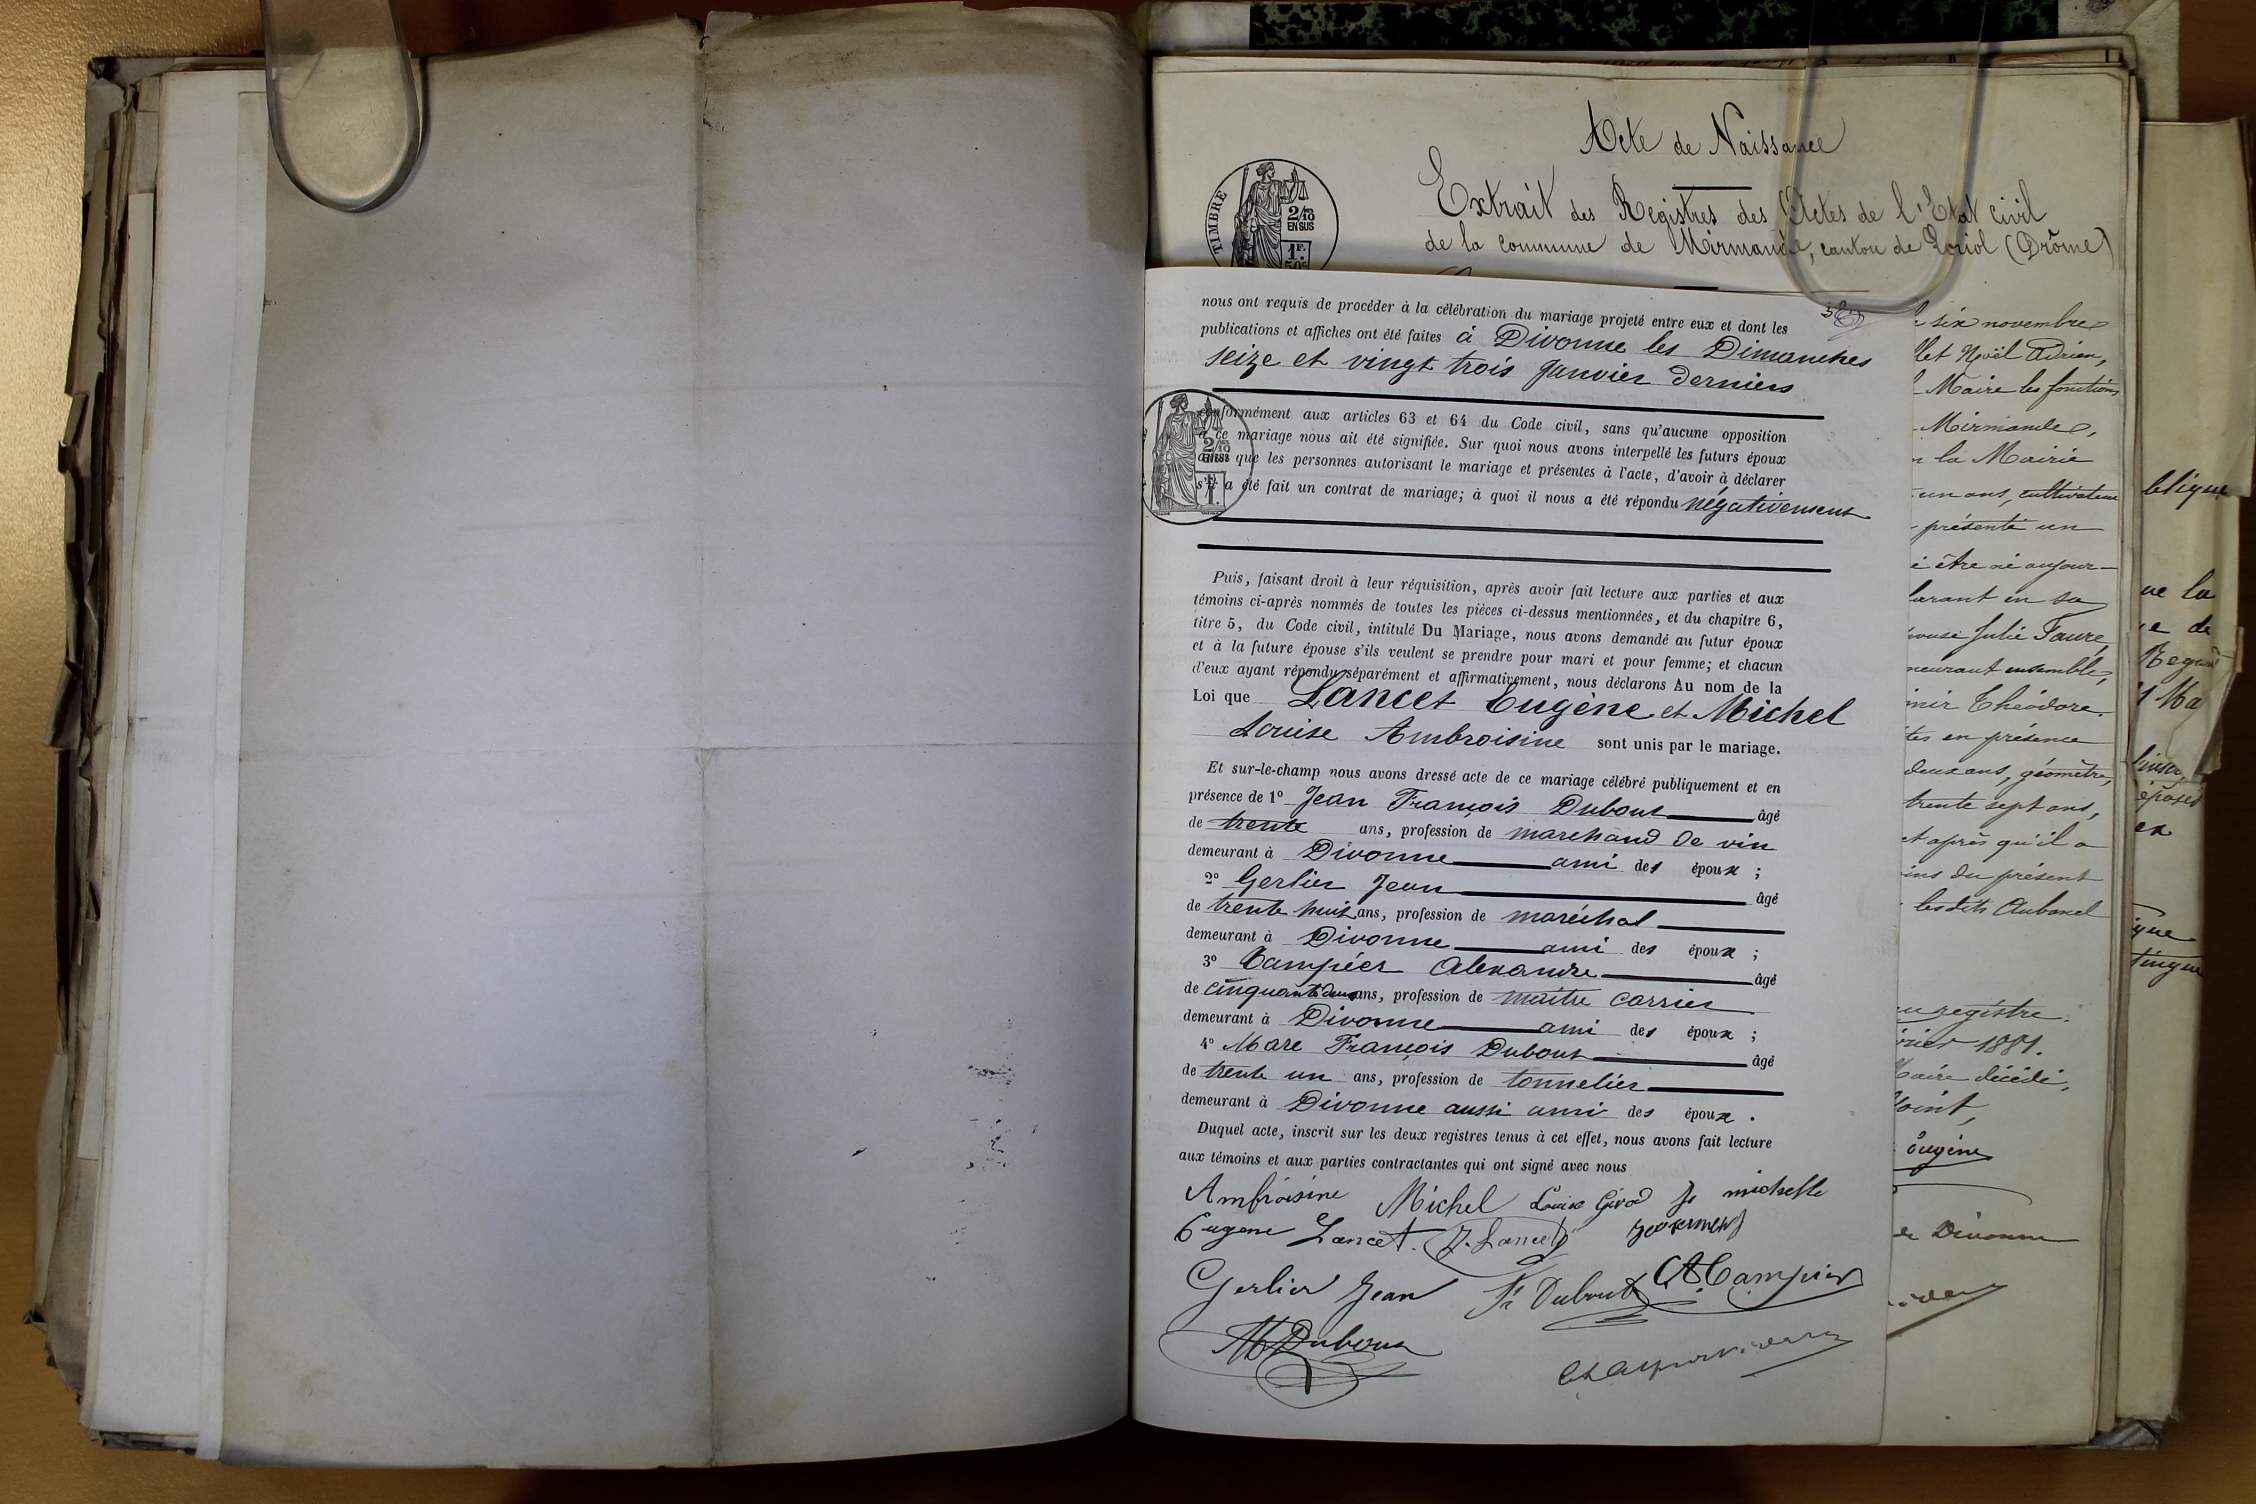 Acte de Naissance
Extrait des Registres des Actes de l'Etat civil
de la commune de Mirmande, canton de Loriol (Drôme)
TIMBRE
2/10
EN SUS
1F.
50c
nous ont requis de procéder à la célébration du mariage projeté entre eux et dont les
publications et affiches ont été faites à Divonne les Dimanches
seize et vingt trois Janvier derniers
conformément aux articles 63 et 64 du Code civil, sans qu'aucune opposition
à ce mariage nous ait été signifiée. Sur quoi nous avons interpellé les futurs époux
ainsi que les personnes autorisant le mariage et présentes à l'acte, d'avoir à déclarer
s'il a été fait un contrat de mariage; à quoi il nous a été répondu négativement
2/10
EN SUS
1F.
Puis, faisant droit à leur réquisition, après avoir fait lecture aux parties et aux
témoins ci-après nommés de toutes les pièces ci-dessus mentionnées, et du chapitre 6,
titre 5, du Code civil, intitulé Du Mariage, nous avons demandé au futur époux
et à la future épouse s'ils veulent se prendre pour mari et pour femme; et chacun
d'eux ayant répondu séparément et affirmativement, nous déclarons Au nom de la
Loi que Lancet Eugène et Michel
Louise Ambroisine sont unis par le mariage.
Et sur-le-champ nous avons dressé acte de ce mariage célébré publiquement et en
présence de 1° Jean François Dubout âgé
de trente ans, profession de marchand de vin
demeurant à Divonne ami des époux ;
2° Gerlier Jean âgé
de trente huit ans, profession de maréchal
demeurant à Divonne ami des époux ;
3° Campier Alexandre âgé
de cinquante deux ans, profession de maître carrier
demeurant à Divonne ami des époux ;
4° Marc François Dubout âgé
de trente un ans, profession de tonnelier
demeurant à Divonne aussi ami des époux.
Duquel acte, inscrit sur les deux registres tenus à cet effet, nous avons fait lecture
aux témoins et aux parties contractantes qui ont signé avec nous
Ambroisine Michel Louise Girod Js michelle
Eugene Lancet. J. Lancet
Gerlier Jean Fs Dubout A Campier
M Dubout
six novembre
let Noël Adrien,
Maire les fonctions
Mirmande,
la Mairie
un ans, cultivateur
présenté un
être né aujour-
larant en sa
pouse Julie Faure,
meurant ensemble,
Théodore.
tes en présence
deux ans, géomètre,
trente sept ans,
et après qu'il a
ins du présent
lesdits Aubanel
registre.
rier 1881.
Maire décédé,
joint,
Eugène
de Divonne
blique
ue la
e de
Ma
éposés
ex